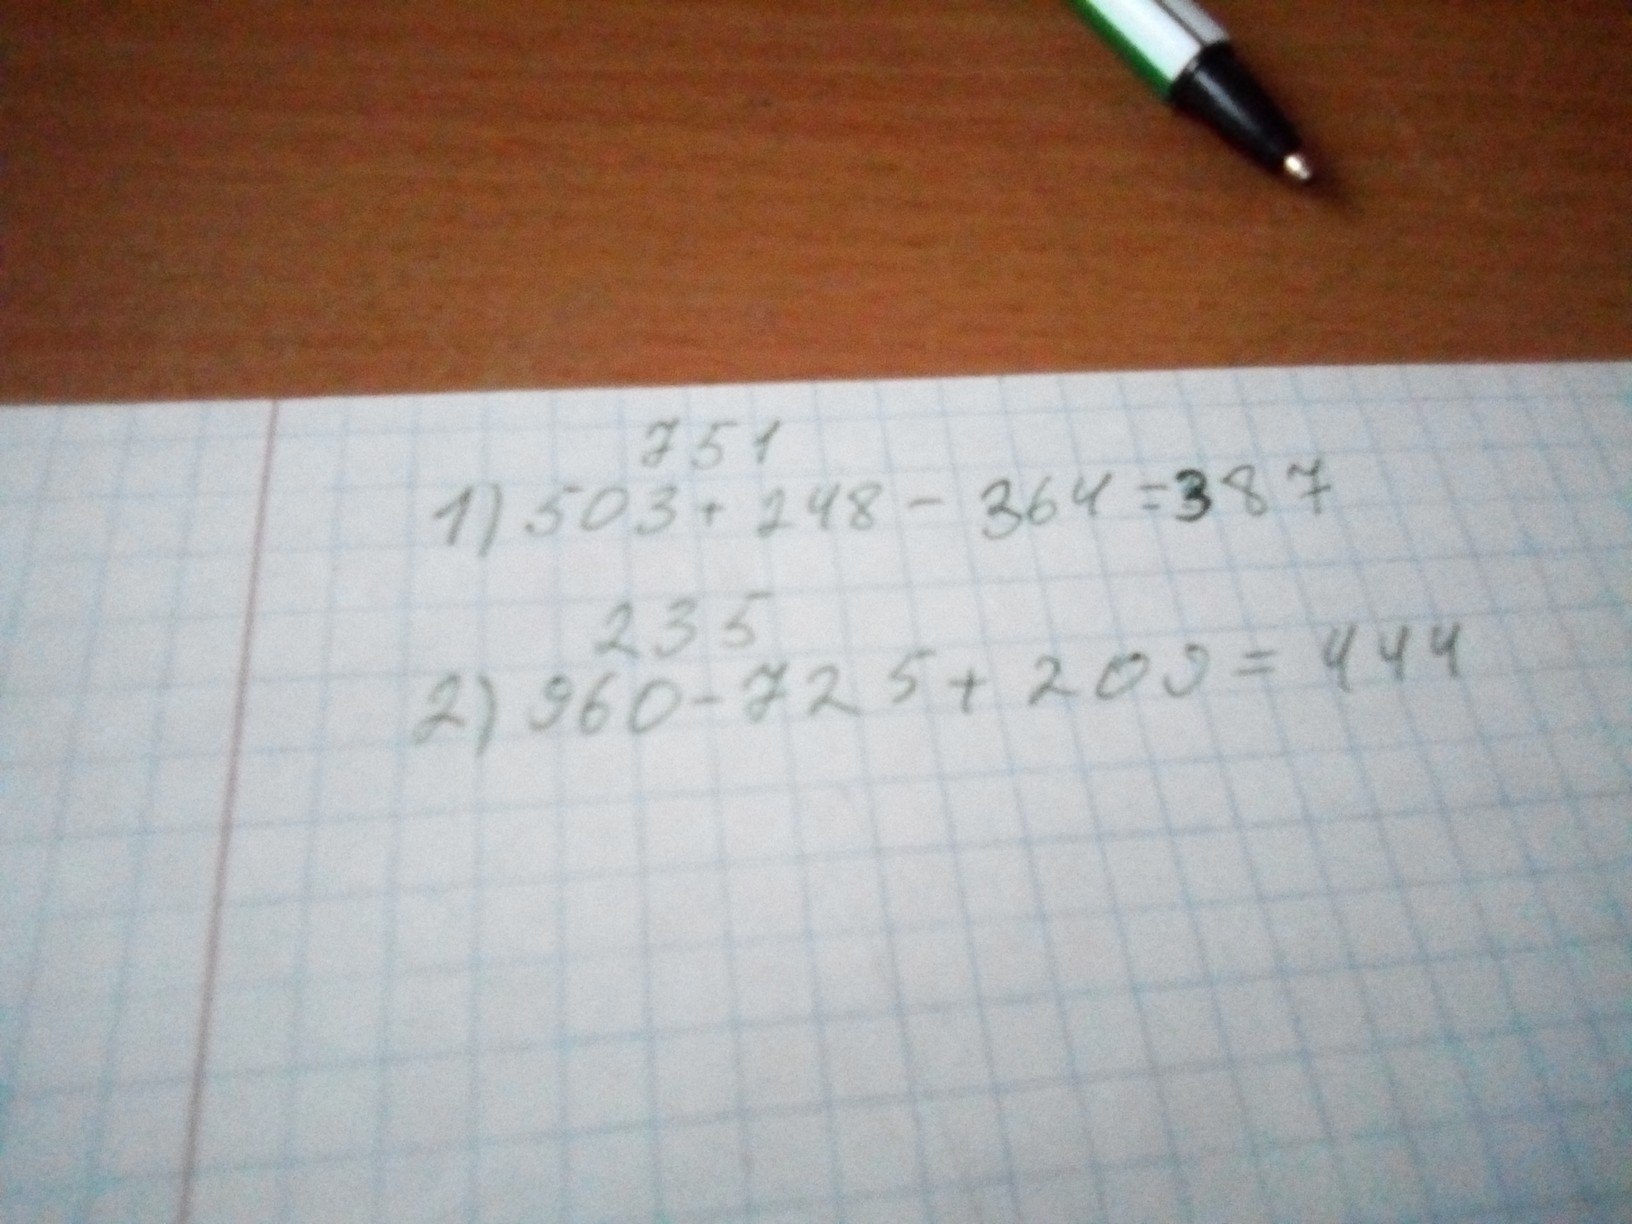 751
1) 503 + 248 - 364 = 387
235
2) 960 - 725 + 209 = 444